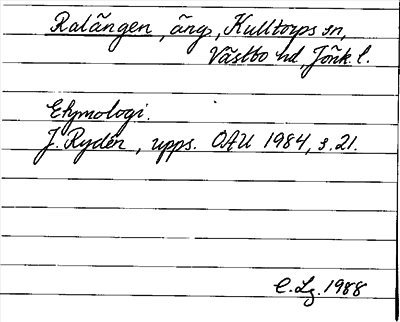 Ralängen, äng, Kulltorps sn,
Västbo hd, Jönk. l.
Etymologi.
J. Rydén, upps. OAU 1984, s. 21.
C. Lg. 1988